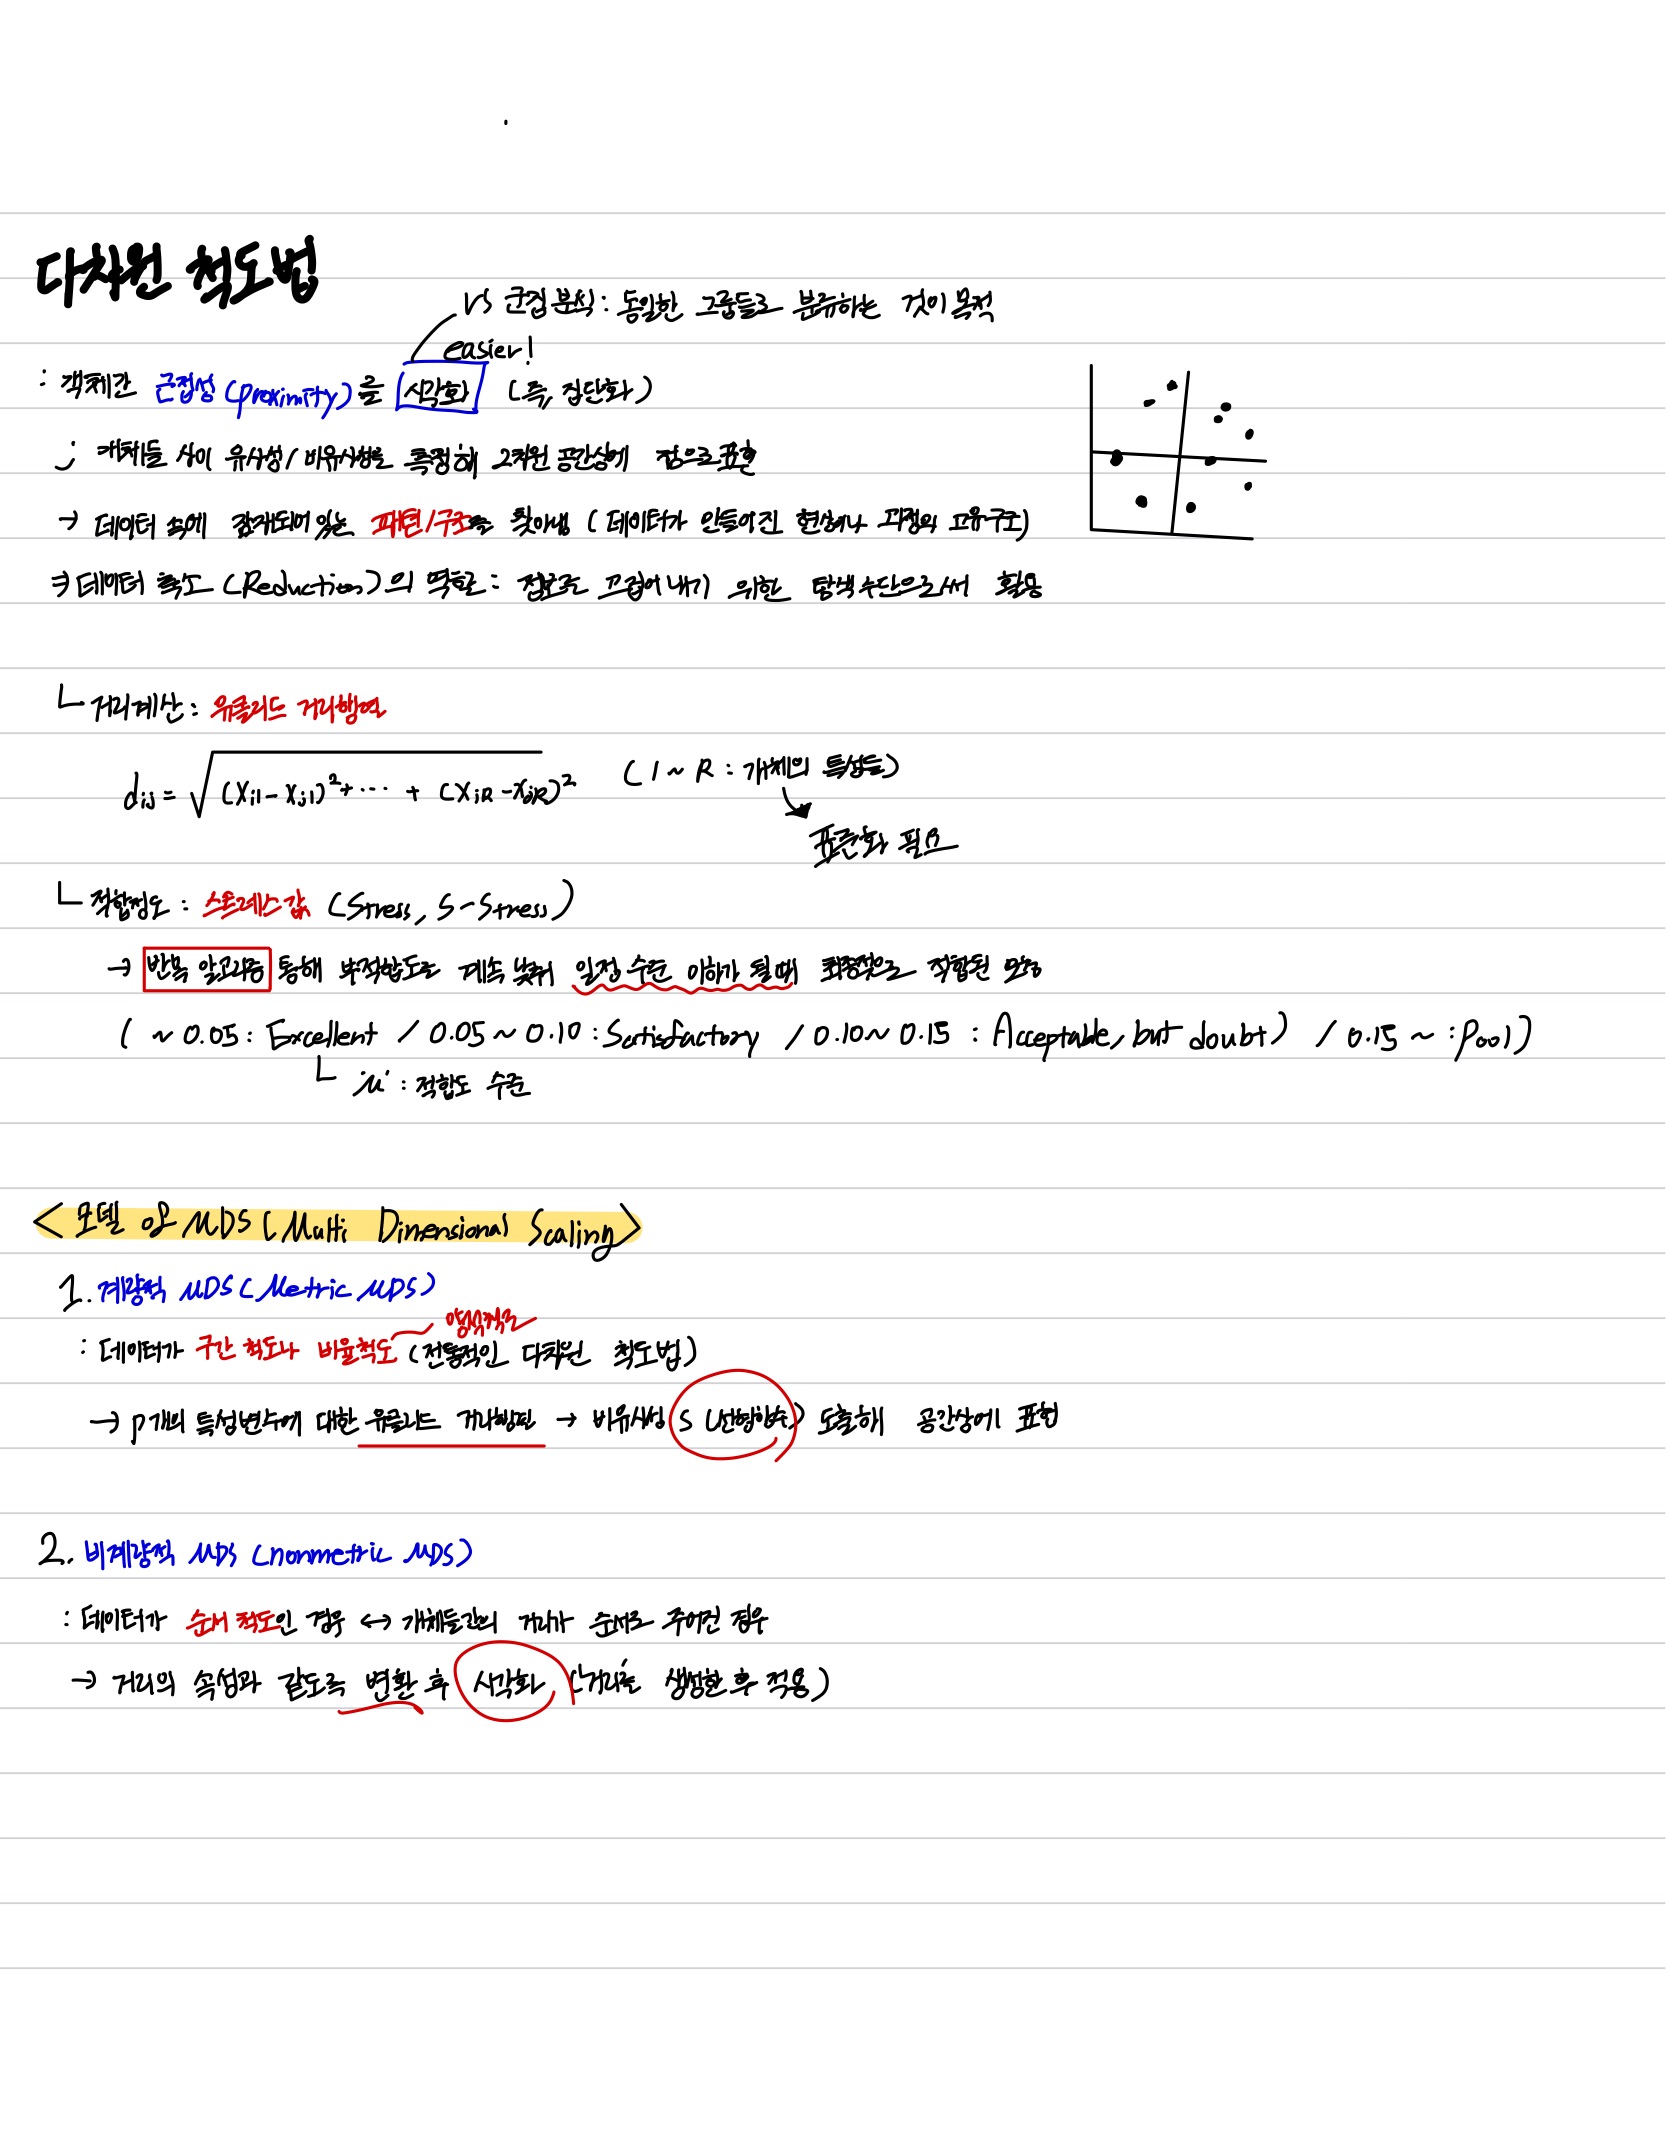 다차원 척도법
vs 군집분석 : 동일한 그룹들로 분류하는 것이 목적
easier!
: 객체간 근접성(proximity)를 시각화 (즉, 집단화)
; 개체들 사이 유사성/비유사성을 측정해 2차원 공간상에 점으로 표현
→ 데이터 속에 잠재되어 있는 패턴/구조를 찾아냄 (데이터가 만들어진 현상이나 과정의 고유구조)
⇒ 데이터 축소 (Reduction)의 역할 : 정보를 끄집어내기 위한 탐색수단으로써 활용
ㄴ 거리계산 : 유클리드 거리행렬
dij = √(Xi1 - Xj1)² + ··· + (XiR - XjR)² (1 ~ R : 개체의 특성들)
표준화 필요
ㄴ 적합정도 : 스트레스값 (Stress, S-Stress)
→ 반복 알고리즘 통해 부적합도를 계속 낮춰 일정 수준 이하가 될때 최종적으로 적합된 모형
( ~ 0.05 : Excellent / 0.05 ~ 0.10 : Satisfactory / 0.10 ~ 0.15 : Acceptable, but doubt) / 0.15 ~ : Poor)
ㄴ : 적합도 수준
<모델 of MDS (Multi Dimensional Scaling>
1. 계량적 MDS (Metric MDS)
양적척도
: 데이터가 구간 척도나 비율척도 (전통적인 다차원 척도법)
→ p개의 특성변수에 대한 유클리드 거리행렬 → 비유사성 S (선형함수) 도출해 공간상에 표현
2. 비계량적 MDS (nonmetric MDS)
: 데이터가 순서 척도인 경우 ↔ 개체들간의 거리가 순서로 주어진 경우
→ 거리의 속성과 같도록 변환 후 시각화 (거리를 생성한 후 적용)